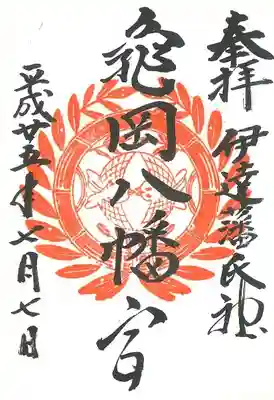 奉拝
伊達藩氏神
亀岡八幡宮
平成廿五年七月七日